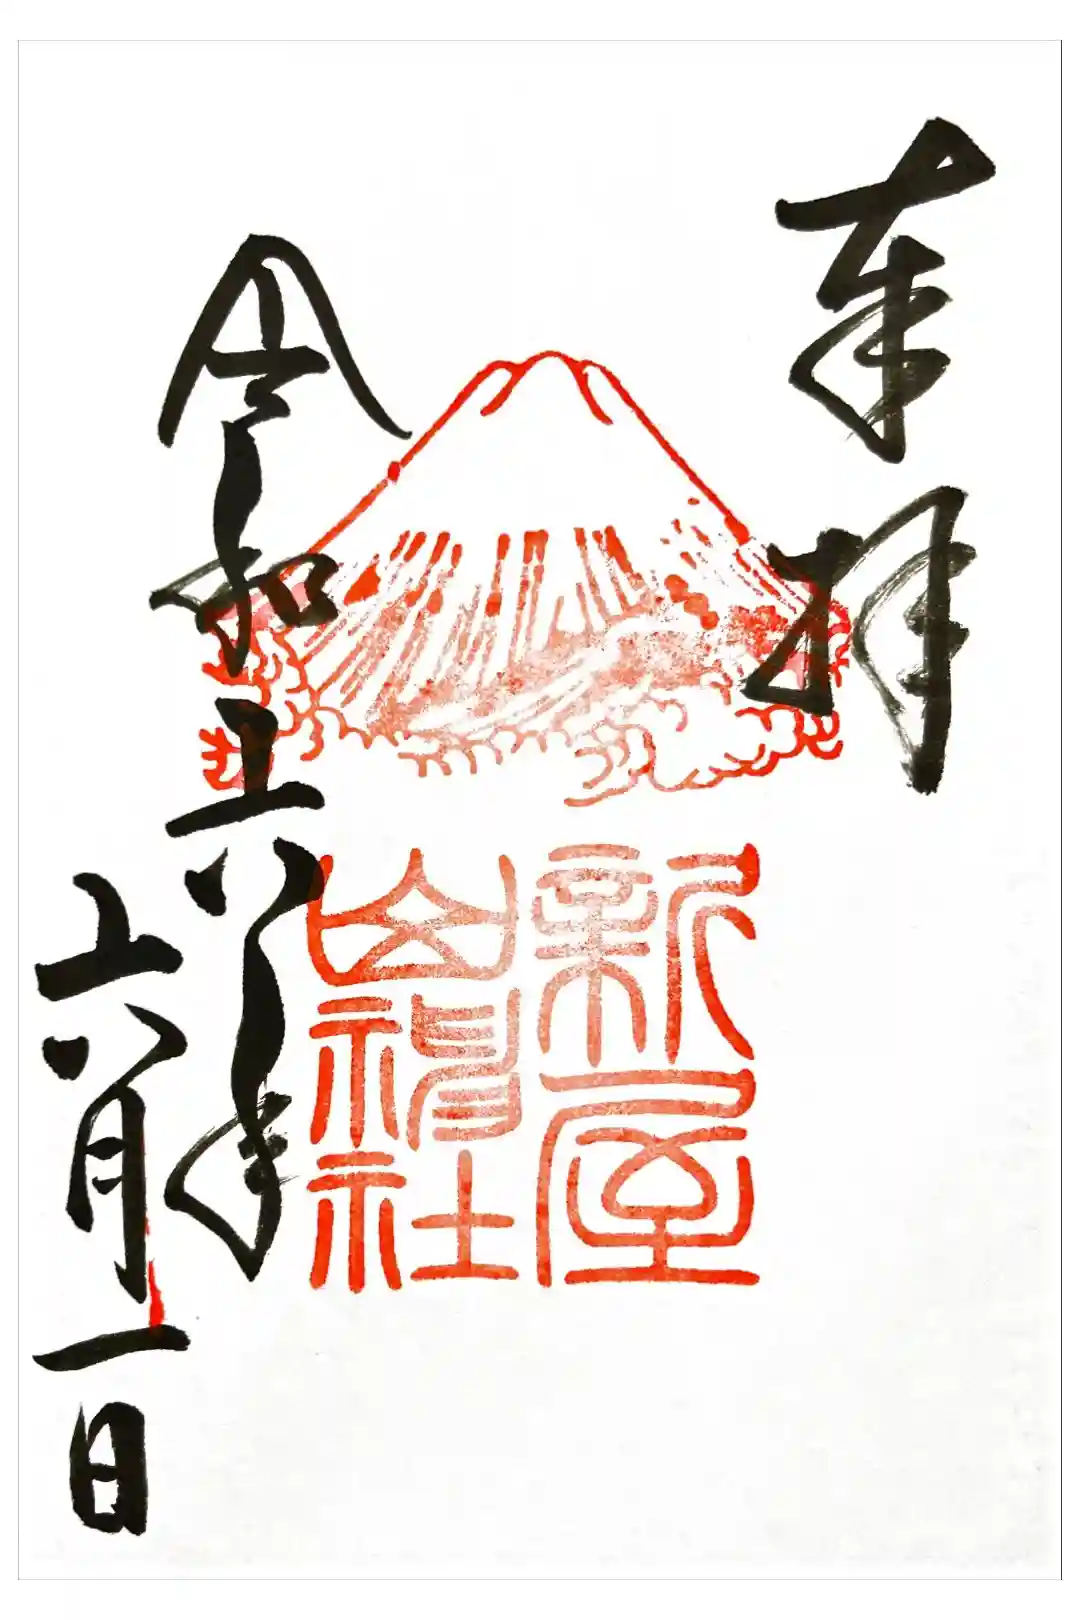 奉拝
新屋
山神社
令和六年
六月一日